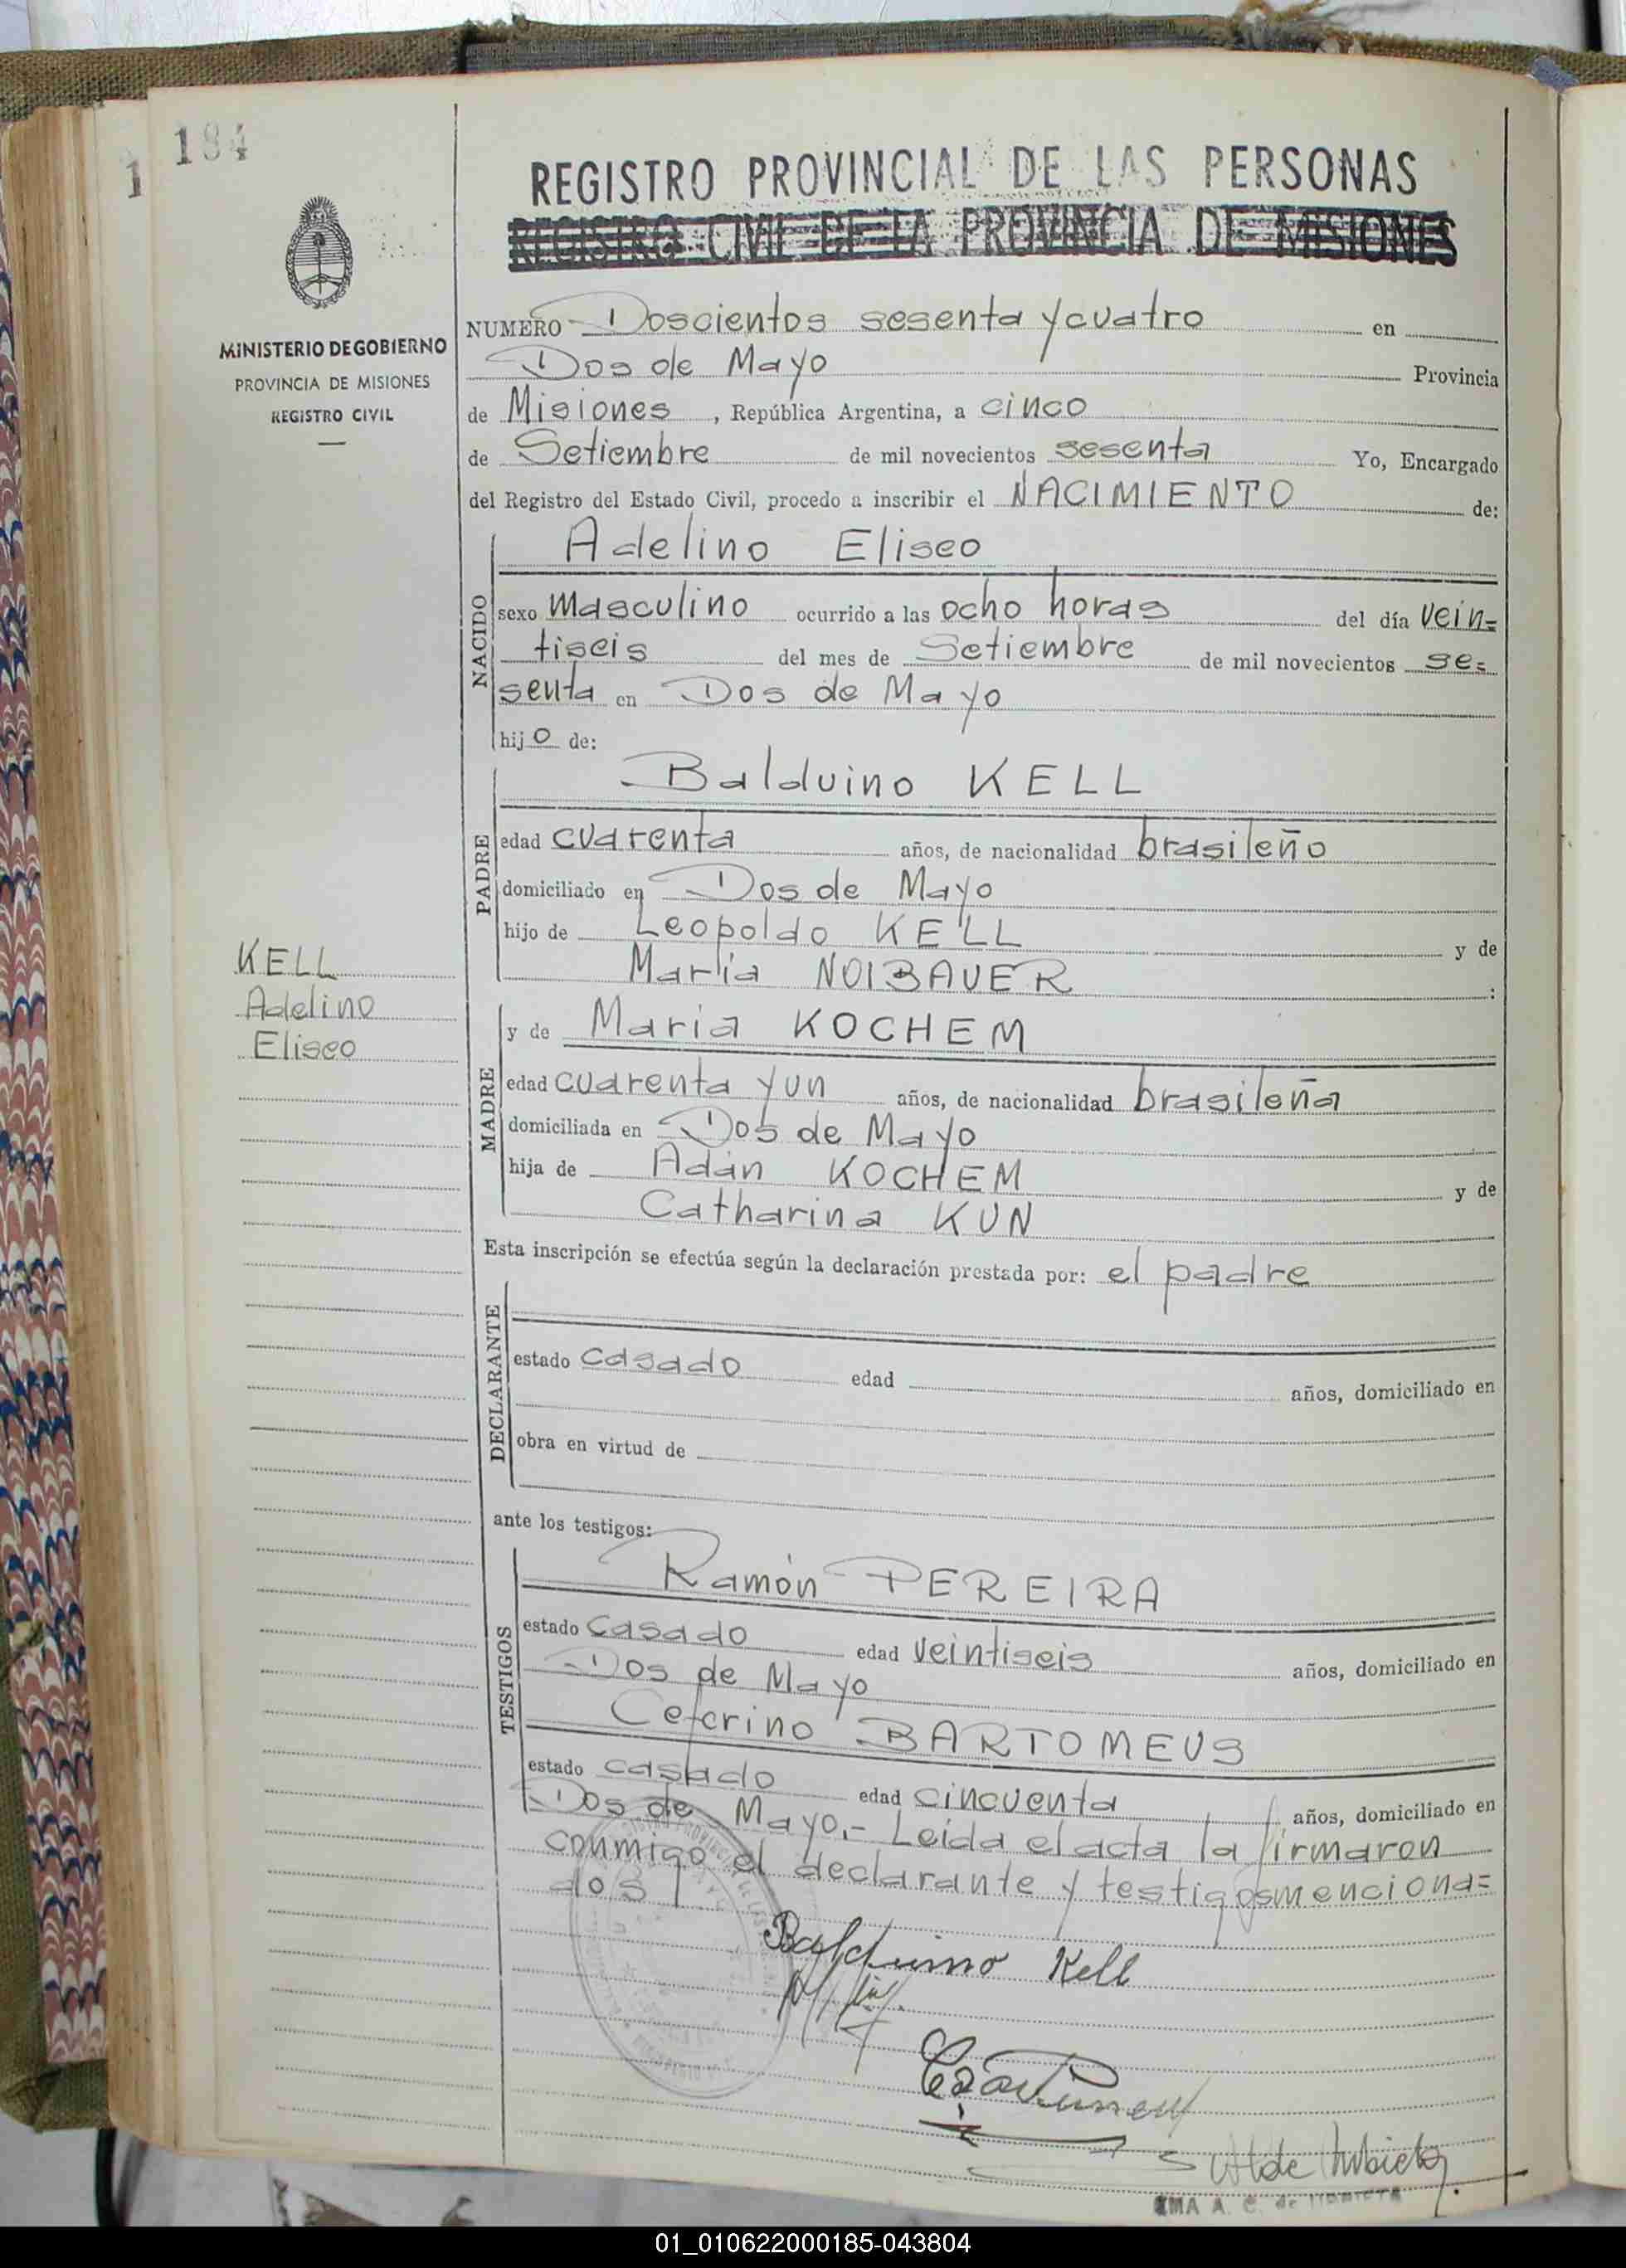 184
1
REGISTRO PROVINCIAL DE LAS PERSONAS
REGISTRO CIVIL DE LA PROVINCIA DE MISIONES
MINISTERIO DE GOBIERNO
PROVINCIA DE MISIONES
REGISTRO CIVIL
NUMERO Doscientos sesenta y cuatro en
Dos de Mayo Provincia
de Misiones, República Argentina, a cinco
de Setiembre de mil novecientos sesenta Yo, Encargado
del Registro del Estado Civil, procedo a inscribir el NACIMIENTO de:
NACIDO
Adelino Eliseo
sexo masculino ocurrido a las ocho horas del día vein=
tiseis del mes de Setiembre de mil novecientos se=
senta en Dos de Mayo
hijo de:
PADRE
Balduino KELL
edad cuarenta años, de nacionalidad brasileño
domiciliado en Dos de Mayo
hijo de Leopoldo KELL y de
María NOIBAUER :
KELL
Adelino
Eliseo
MADRE
y de María KOCHEM
edad cuarenta y un años, de nacionalidad brasileña
domiciliada en Dos de Mayo
hija de Adán KOCHEM y de
Catharina KUN
Esta inscripción se efectúa según la declaración prestada por: el padre
DECLARANTE
estado casado edad años, domiciliado en
obra en virtud de
ante los testigos:
TESTIGOS
Ramón PEREIRA
estado casado edad veintiseis años, domiciliado en
Dos de Mayo
Ceferino BARTOMEUS
estado casado edad cincuenta años, domiciliado en
Dos de Mayo.- Leída el acta la firmaron
conmigo el declarante y testigos menciona=
dos
Balduino Kell
A. C. de
01_010622000185-043804